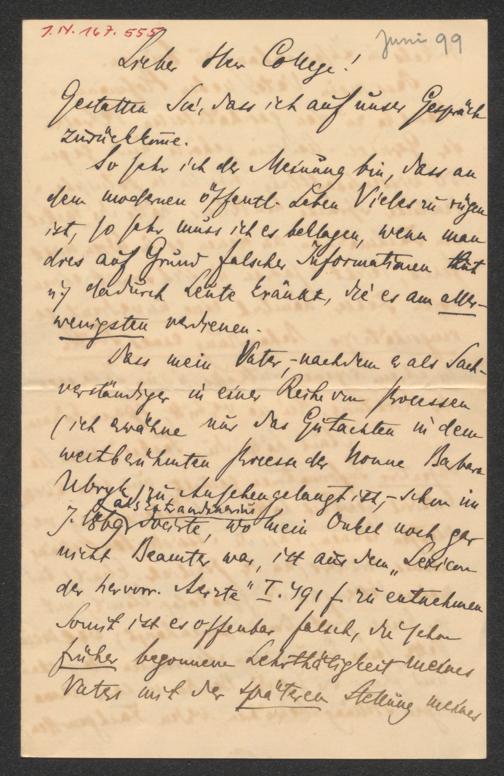 I.N. 167.555
Juni 99
Lieber Herr College!
Gestatten Sie, dass ich auf unser Gespräch
zurückkomme.
So sehr ich der Meinung bin, dass an
dem modernen öffentl. Leben Vieles zu rügen
ist, so sehr muss ich es beklagen, wenn man
dies auf Grund falscher Informationen thut
u. dadurch Leute kränkt, die es am aller-
wenigsten verdienen.
Dass mein Vater, – nachdem er als Sach-
verständiger in einer Reihe von Processen
(ich erwähne nur das Gutachten in dem
weltberühmten Process der Nonne Barbara
Ubryk) zu Ansehen gelangt ist, – schon im
J. 1869 als
docirte, wo mein Onkel noch gar
nicht Beamter war, ist aus dem „Lexicon
der hervorr. Aerzte" I. 491 f. zu entnehmen
Somit ist es offenbar falsch, die schon
früher begonnene Lehrthätigkeit meines
Vaters mit der späteren Stellung meines